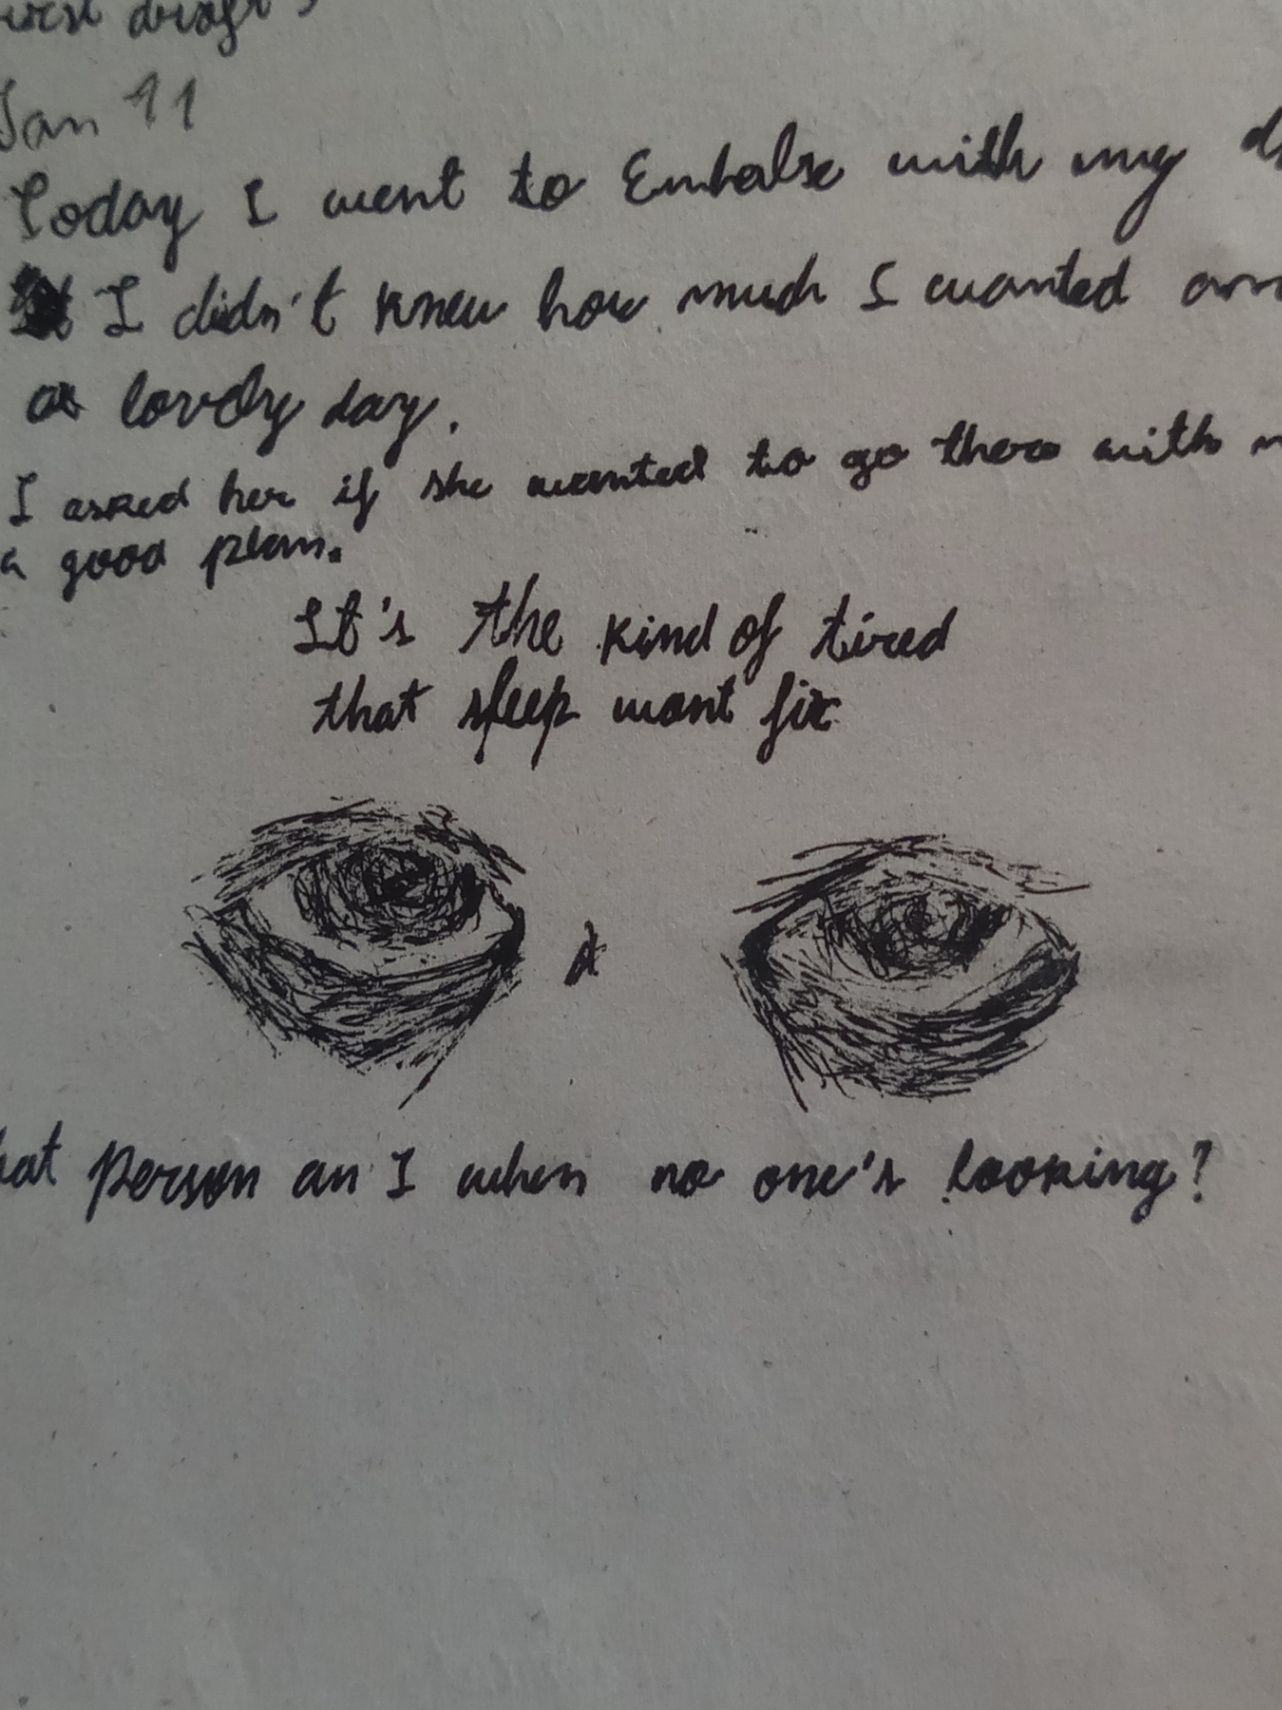 draft
Jan 11
Today I went to Embalse with my
I didn't know how much I wanted
a lovely day.
I asked her if she wanted to go there with
a good plan.
It's the kind of tired
that sleep wont fix
person am I when no one's looking?